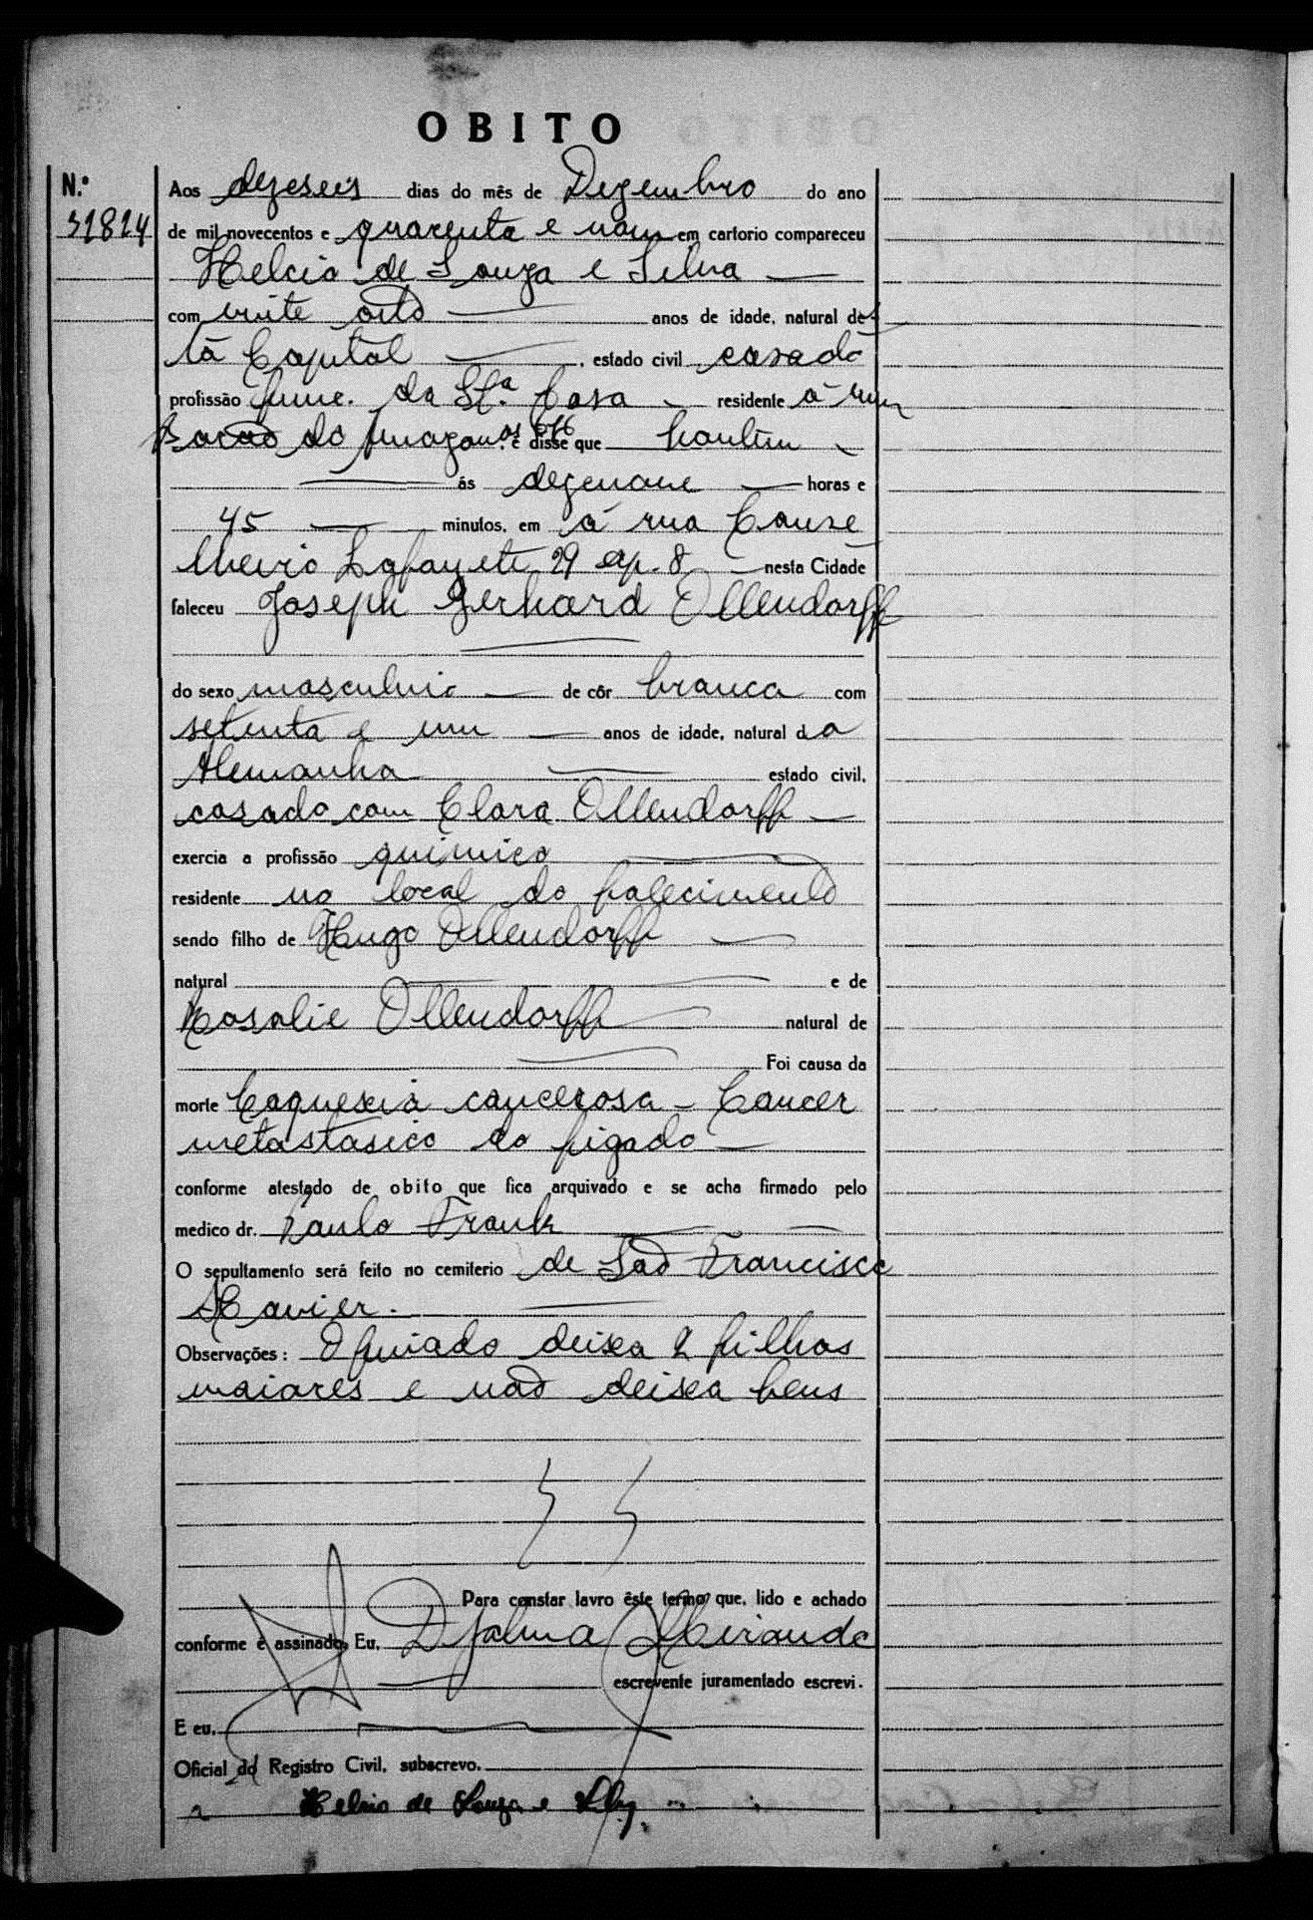 OBITO
N.º
31814
Aos dezeseis dias do mês de Dezembro do ano
de mil novecentos e quarenta e nove em cartorio compareceu
Helcio de Souza e Silva
com vinte oito anos de idade, natural des
ta Capital, estado civil casado
profissão func. da Sta. Casa residente á rua
Barão do Amazonas e disse que hontem
ás dezenove horas e
45 minutos, em á rua Conse
lheiro Lafayete 29 ap. 8 nesta Cidade
faleceu Joseph Gerhard Ollendorff
do sexo masculino de côr branca com
setenta e um anos de idade, natural da
Alemanha estado civil,
casado com Clara Ollendorff
exercia a profissão quimico
residente no local do falecimento
sendo filho de Hugo Ollendorff
natural e de
Rosalie Ollendorff natural de
Foi causa da
morte Caquexia cancerosa - Cancer
metastasico do figado
conforme atestado de obito que fica arquivado e se acha firmado pelo
medico dr. Paulo Frank
O sepultamento será feito no cemiterio de São Francisco
Xavier.
Observações: O finado deixa 2 filhos
maiores e não deixa bens
Para constar lavro êste termo que, lido e achado
conforme é assinado. Eu, Djalma Miranda
escrevente juramentado escrevi.
E eu,
Oficial do Registro Civil, subscrevo.
a Helcio de Souza e Silva